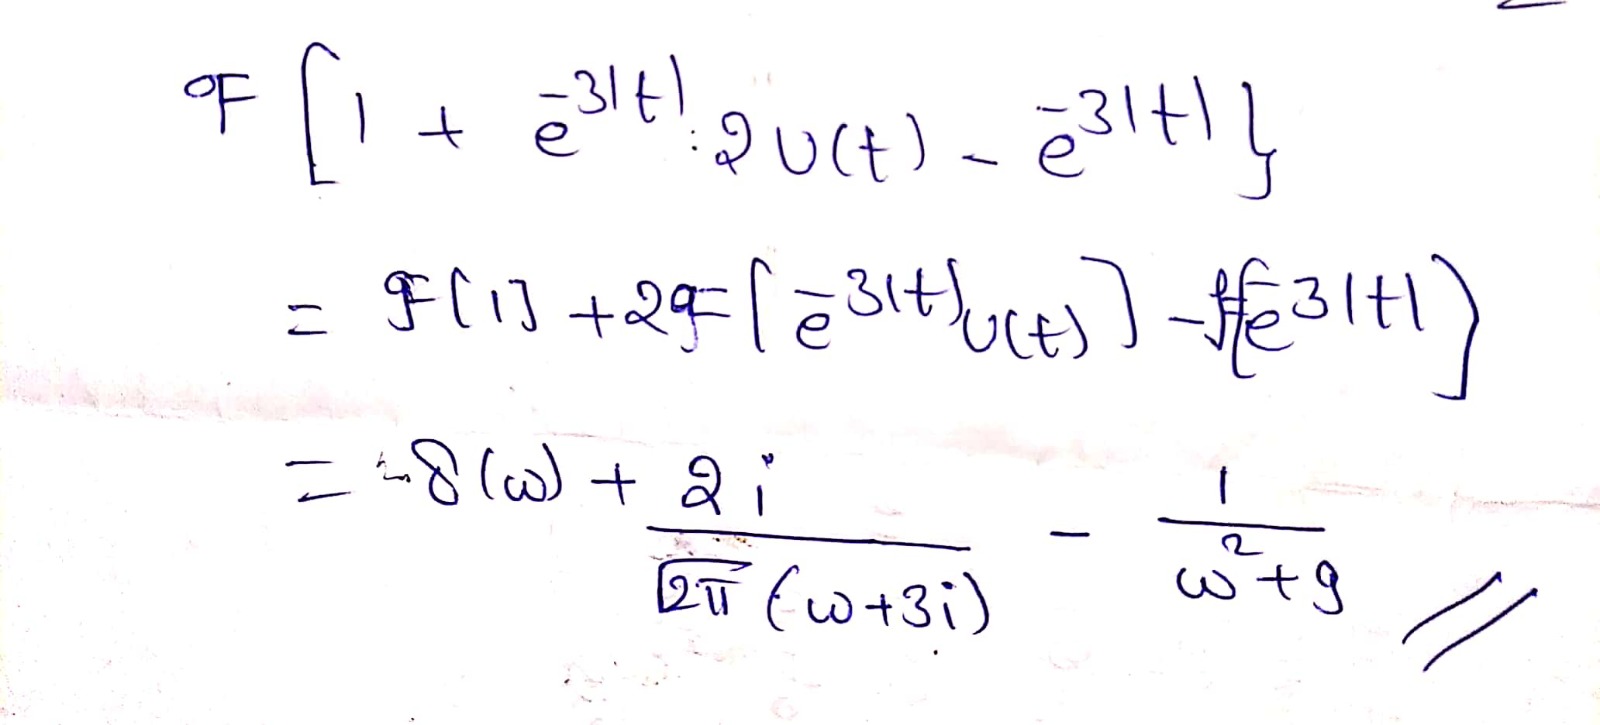 F[1 + e^{-3|t|}.2U(t) - e^{-3|t|}}
= F[1] + 2F[e^{-3|t|}U(t)] - F[e^{-3|t|}]
= δ(ω) + 2i/(√2π (ω+3i)) - 1/(ω²+9) //